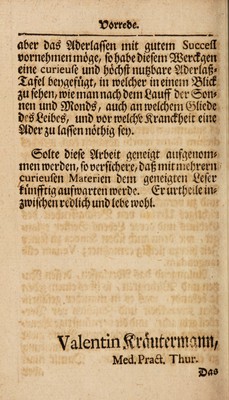 Vorrede.
aber das Aderlassen mit gutem Succeſſ
vornehmen möge, ſo habe dieſem Werckgen
eine curieuſe und höchſt nutzbare Aderlaß-
Tafel beygefügt, in welcher in einem Blick
zu ſehen, wie man nach dem Lauff der Son-
nen und Monds, auch an welchem Gliede
des Leibes, und vor welche Kranckheit eine
Ader zu laſſen nöthig ſey.
Solte dieſe Arbeit geneigt aufgenom-
men werden, ſo verſichere, daß mit mehrern
curieuſen Materien dem geneigten Leſer
künfftig aufwarten werde. Er urtheile in-
zwiſchen redlich und lebe wohl.
Valentin Kräutermann,
Med. Pract. Thur.
Das